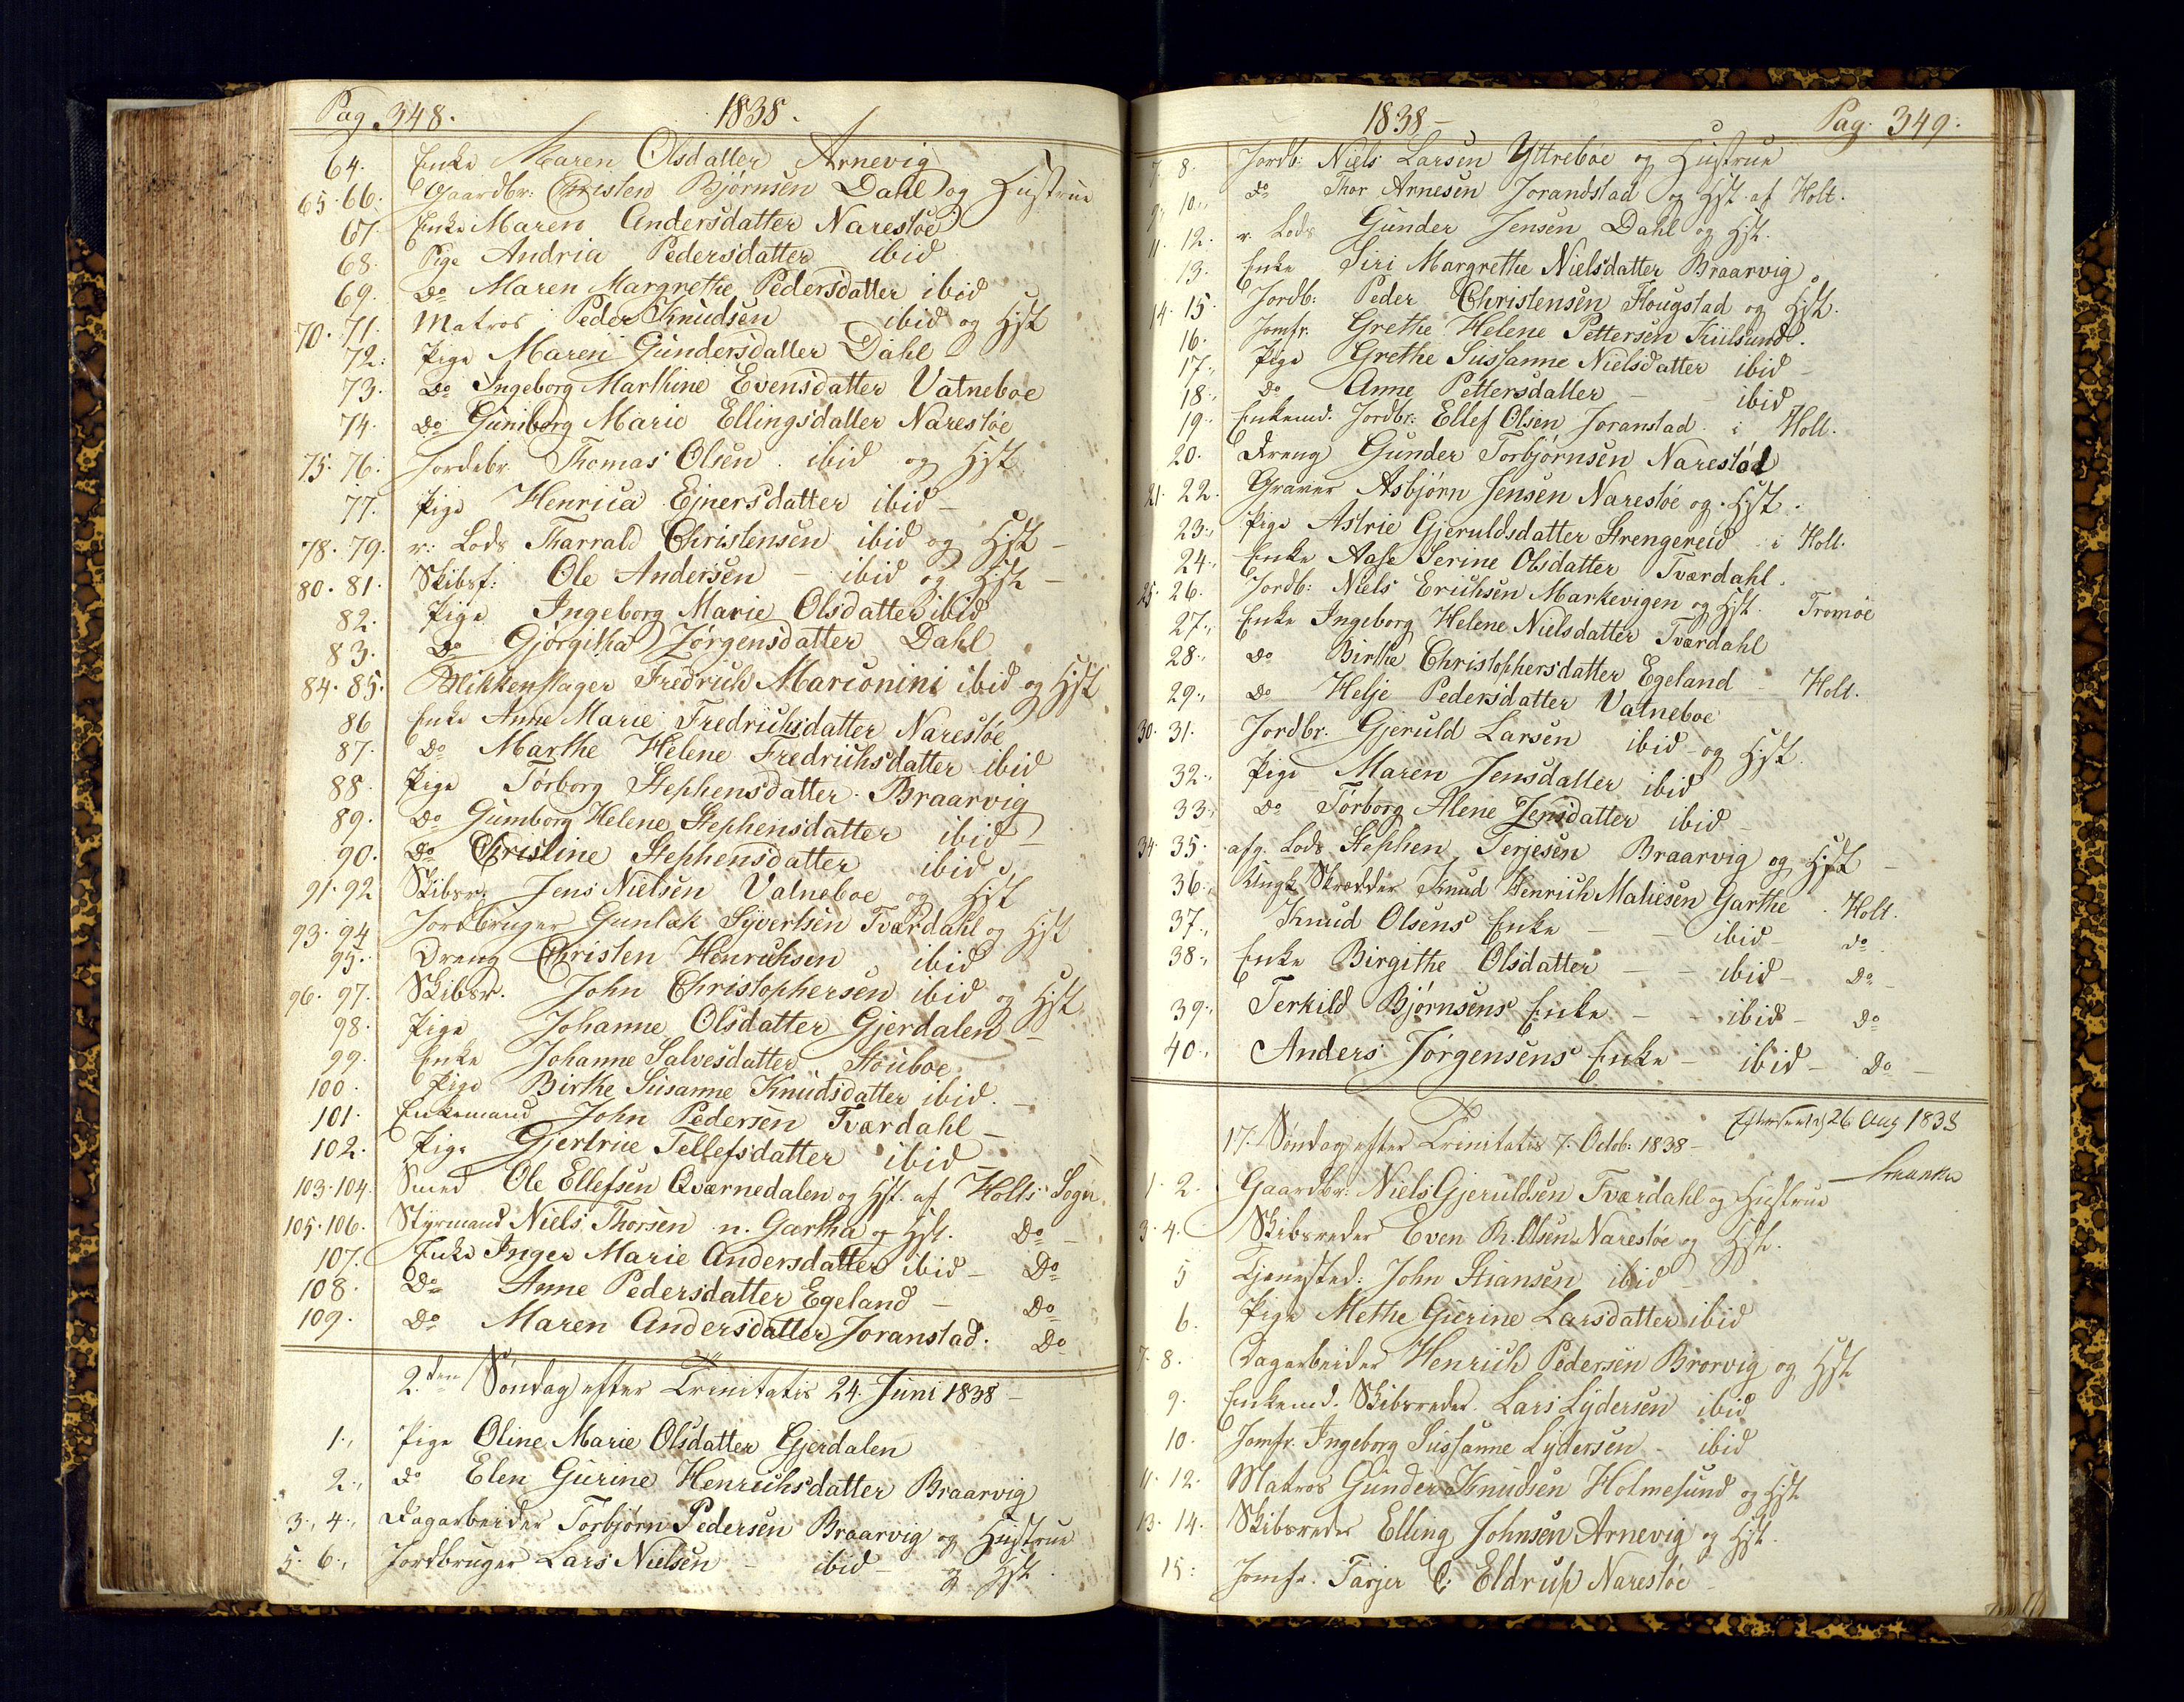 Pag. 348. 1838.
64. Enke Maren Olsdatter Arnevig
65.66. Gaardbr: Christen Bjørnsen Dahl og Hustrue
67. Enke Maren Andersdatter Narestøe
68. Pige Andria Pedersdatter ibid
69. Do Maren Margrethe Pedersdatter ibid
70.71. Matros Peder Knudsen ibid og Hst
72. Pige Maren Gundersdatter Dahl
73. Do Ingeborg Marthine Evensdatter Vatneboe
74. Do Gunborg Marie Ellingsdatter Narestøe
75.76. Jordebr. Thomas Olsen ibid og Hst
77. Pige Henrica Ejnersdatter ibid –
78.79. r: Lods Tharrald Christensen ibid og Hst –
80.81. Skibsf: Ole Andersen – ibid og Hst –
82. Pige Ingeborg Marie Olsdatter ibid
83. Do Gjørgitha Jørgensdatter Dahl
84.85. Blikkenslager Fredrich Marconini ibid og Hst
86 Enke Anne Marie Fredrichsdatter Narestøe
87. Do Marthe Helene Fredrichsdatter ibid
88. Pige Torborg Stephensdatter Braarvig
89. Do Gumborg Helene Stephensdatter ibid –
90. Do Christine Stephensdatter ibid
91.92 Skibsr. Jens Nielsen Vatneboe og Hst
93.94 Jordbruger Gunlak Syvertsen Tværdahl og Hst
95. Dreng Christen Henrichsen ibid
96.97. Skibsr. John Christophersen ibid og Hst
98. Pige Johanne Olsdatter Gjerdalen –
99. Enke Johanne Salvesdatter Stouboe
100. Pige Birthe Susanne Knudsdatter ibid. –
101. Enkemand John Pedersen Tværdahl –
102. Pige Gjertrue Tellefsdatter ibid –
103.104. Smed Ole Ellefsen Qværnedalen og Hst. af Holts Sogn
105.106. Styrmand Niels Thorsen n. Gartha og Hst. Do –
107. Enke Inger Marie Andersdatter ibid – Do
108. Do Anne Pedersdatter Egeland – Do
109. Do Maren Andersdatter Joranstad. Do
2den Søndag efter Trinitatis 24. Juni 1838 –
1., Pige Oline Marie Olsdatter Gjerdalen
2., do Elen Gurine Henrichsdatter Braarvig
3., 4., Dagarbeider Torbjørn Pedersen Braarvig og Hustrue
5. 6., Jordbruger Lars Nielsen – ibid – og Hst.
1838 – Pag. 349.
7. 8. Jordb: Niels Larsen Yttreboe og Hustrue
9. 10., do Thor Arnesen Jorandstad og Hst. af Holt.
11. 12. r. Lods Gunder Jensen Dahl og Hst.
13. Enke Siri Margrethe Nielsdatter Braarvig
14. 15. Jordb: Peder Christensen Flougstad og Hst.
16. Jomfr. Grethe Helene Pettersen Kiilsund.
17., Pige Grethe Sussanne Nielsdatter ibid –
18., Do Anne Pettersdatter – ibid
19., Enkemd. Jordbr: Ellef Olsen Joranstad i Holt.
20. Dreng Gunder Torbjørnsen Narestød
21. 22. Graver Asbjørn Jensen Narestøe og Hst.
23., Pige Astrie Gjeruldsdatter Strengereid i Holt.
24., Enke Aase Serine Olsdatter Tværdahl.
25. 26. Jordb: Niels Erichsen Markevigen og Hst. Tromøe
27., Enke Ingeborg Helene Nielsdatter Tværdahl
28., do Birthe Christophersdatter Egeland – Holt.
29., Do Helje Pedersdatter Vatneboe
30. 31. Jordbr. Gjeruld Larsen ibid – og Hst.
32., Pige Maren Jensdatter ibid
33., Do Torborg Alene Jensdatter ibid –
34. 35. afg. Lods Stephen Terjesen Braarvig og Hst –
36., Ungk. Skrædder Knud Henrich Matiesen Garthe. Holt.
37., Knud Olsens Enke – – ibid – do
38., Enke Birgithe Olsdatter – – ibid – Do –
39., Terkild Bjørnsens Enke – – ibid – Do
40., Anders Jørgensens Enke – ibid – Do –
Efterseet d 26 Aug 1838
17. Søndag efter Trinitatis 7. Octob: 1838 –
1. 2. Gaardbr: Niels Gjeruldsen Tværdahl og Hustrue
3. 4. Skibsreder Even Th. Olsen Narestøe og Hst.
5 Tjenested: John Stiansen ibid –
6. Pige Methe Gierine Larsdatter ibid
7. 8. Dagarbeider Henrich Pedersen Brorvig og Hst
9. Enkemd. Skibsreder Lars Lydersen ibid
10. Jomfr. Ingeborg Sussanne Lydersen – ibid
11. 12. Matros Gunder Knudsen Holmesund og Hst
13. 14. Skibsreder Elling Johnsen Arnevig og Hst.
15: Jomfr. Tarjer C. Eldrup Narestøe –